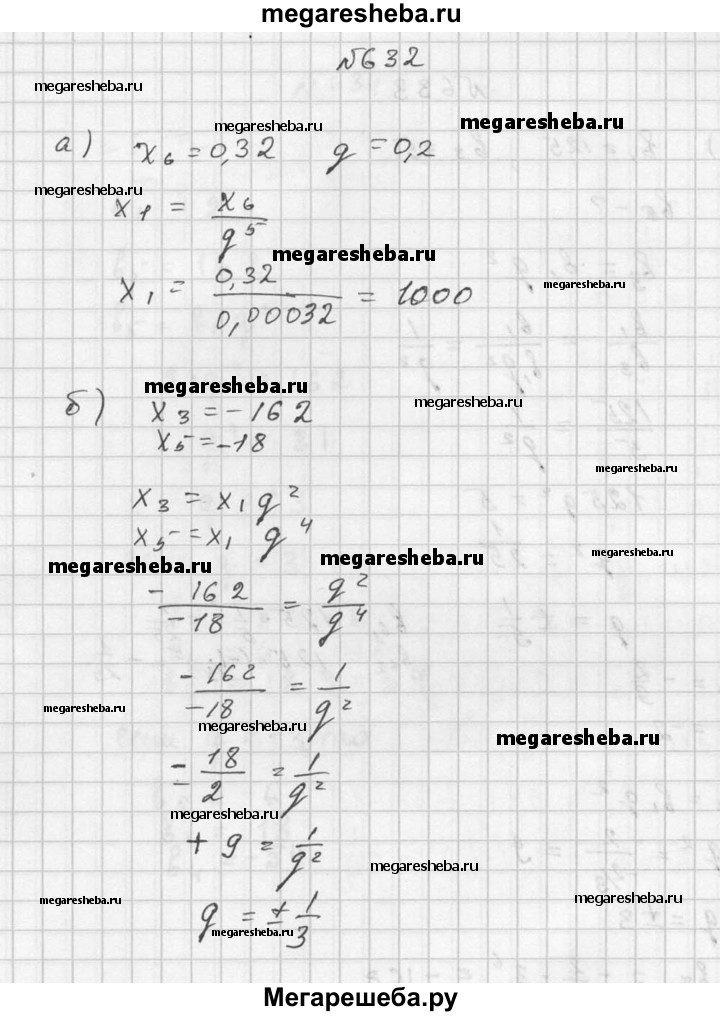 megaresheba.ru
№632
megaresheba.ru
megaresheba.ru
megaresheba.ru
а) x₆ = 0,32 g = 0,2
megaresheba.ru
x₁ = x₆ / g⁵
megaresheba.ru
x₁ = 0,32 / 0,00032 = 1000
megaresheba.ru
megaresheba.ru
megaresheba.ru
б) x₃ = -162
x₅ = -18
megaresheba.ru
x₃ = x₁ g²
x₅ = x₁ g⁴
megaresheba.ru
megaresheba.ru
megaresheba.ru
- 162 / -18 = g² / g⁴
- 162 / -18 = 1 / g²
megaresheba.ru
megaresheba.ru
megaresheba.ru
= 18 / 2 = 1 / g²
megaresheba.ru
+ 9 = 1 / g²
megaresheba.ru
megaresheba.ru
megaresheba.ru
g = ± 1 / 3
megaresheba.ru
Мегарешеба.ру